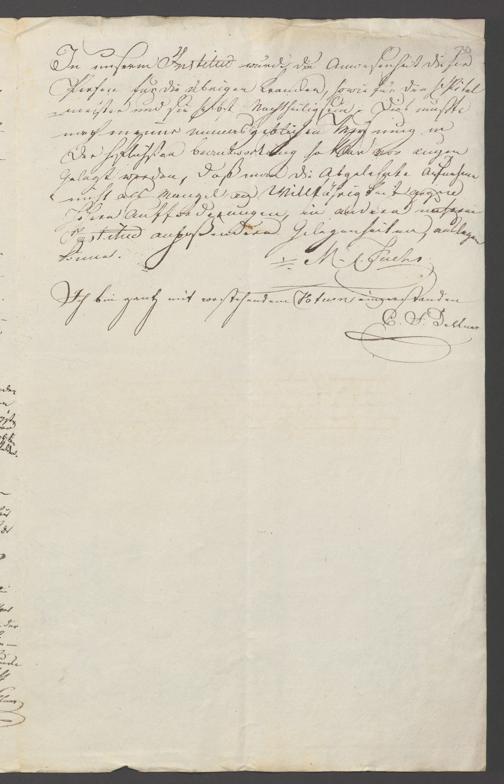 In unserm Institut würde die Anwesenheit dieser
Person für die übrigen Kranken, sowie für den Spital
meister und sie selbst Nachtheilig sein. Dies müßte
nach meiner unmaßgeblichen Meynung in
der beantwortung so klar vor augen
gelegt werden, daß man die Abgelehnte Aufnahm
nicht als Mangel an Willfährigkeit gegen
Ihren Aufforderungen, in andern unserm
Institut anpaßendern Gelegenheiten, auslegen
könne. M. Fuchs
Ich bin ganz mit vorstehendem Votum einverstanden